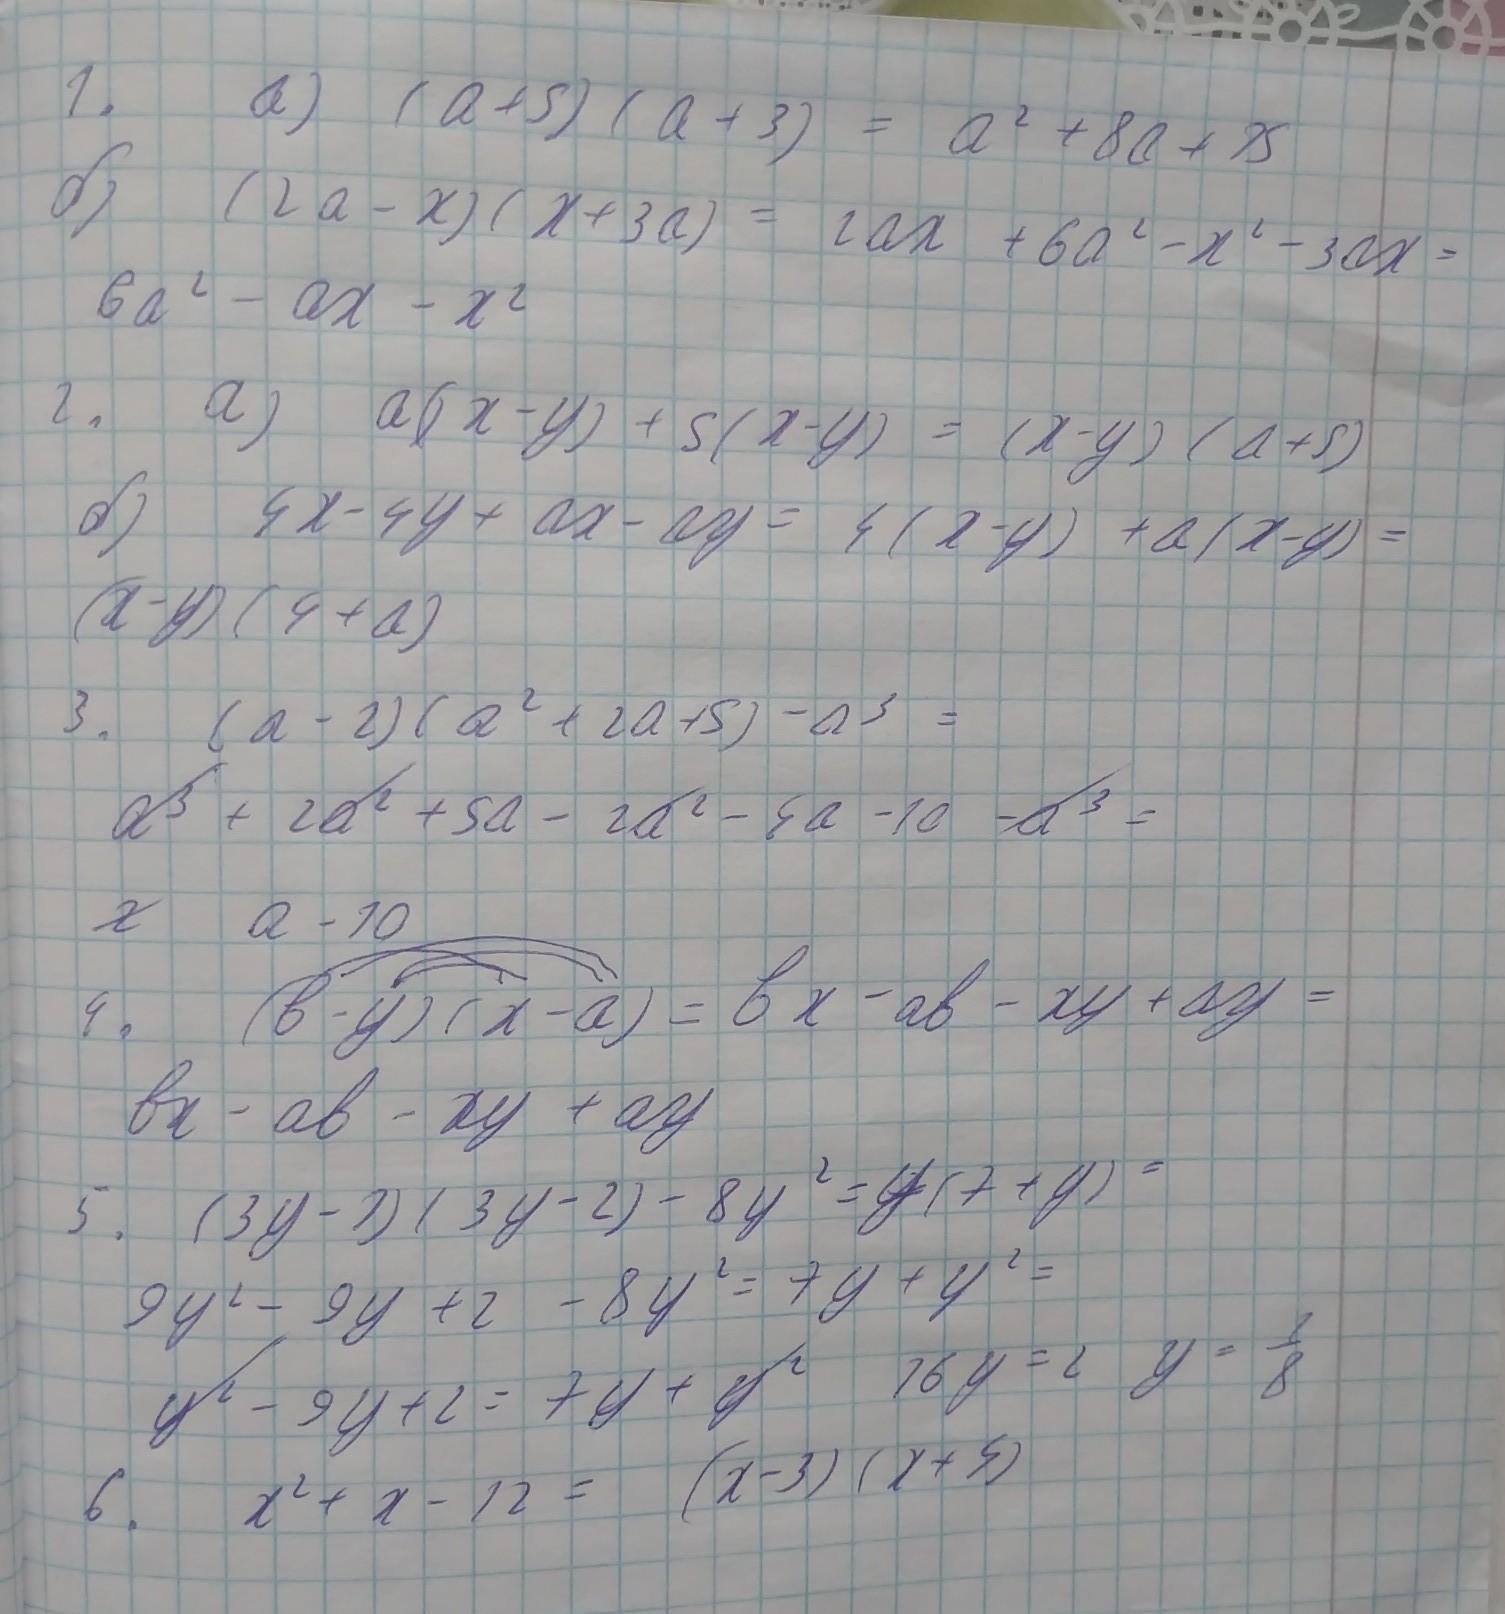 1. а) (a+5)(a+3) = a² + 8a + 15
б) (2a - x)(x+3a) = 2ax + 6a² - x² - 3ax =
6a² - ax - x²
2. а) a(x-y) + 5(x-y) = (x-y)(a+5)
б) 4x - 4y + ax - ay = 4(x-y) + a(x-y) =
(x-y)(4+a)
3. (a - 2)(a² + 2a + 5) - a³ =
a³ + 2a² + 5a - 2a² - 4a - 10 - a³ =
a - 10
4. (b-y)(x-a) = bx - ab - xy + ay =
bx - ab - xy + ay
5. (3y-1)(3y-2) - 8y² = y(7+y) =
9y² - 9y + 2 - 8y² = 7y + y² =
y² - 9y + 2 = 7y + y² 16y = 2 y = 1/8
6. x² + x - 12 = (x-3)(x+4)